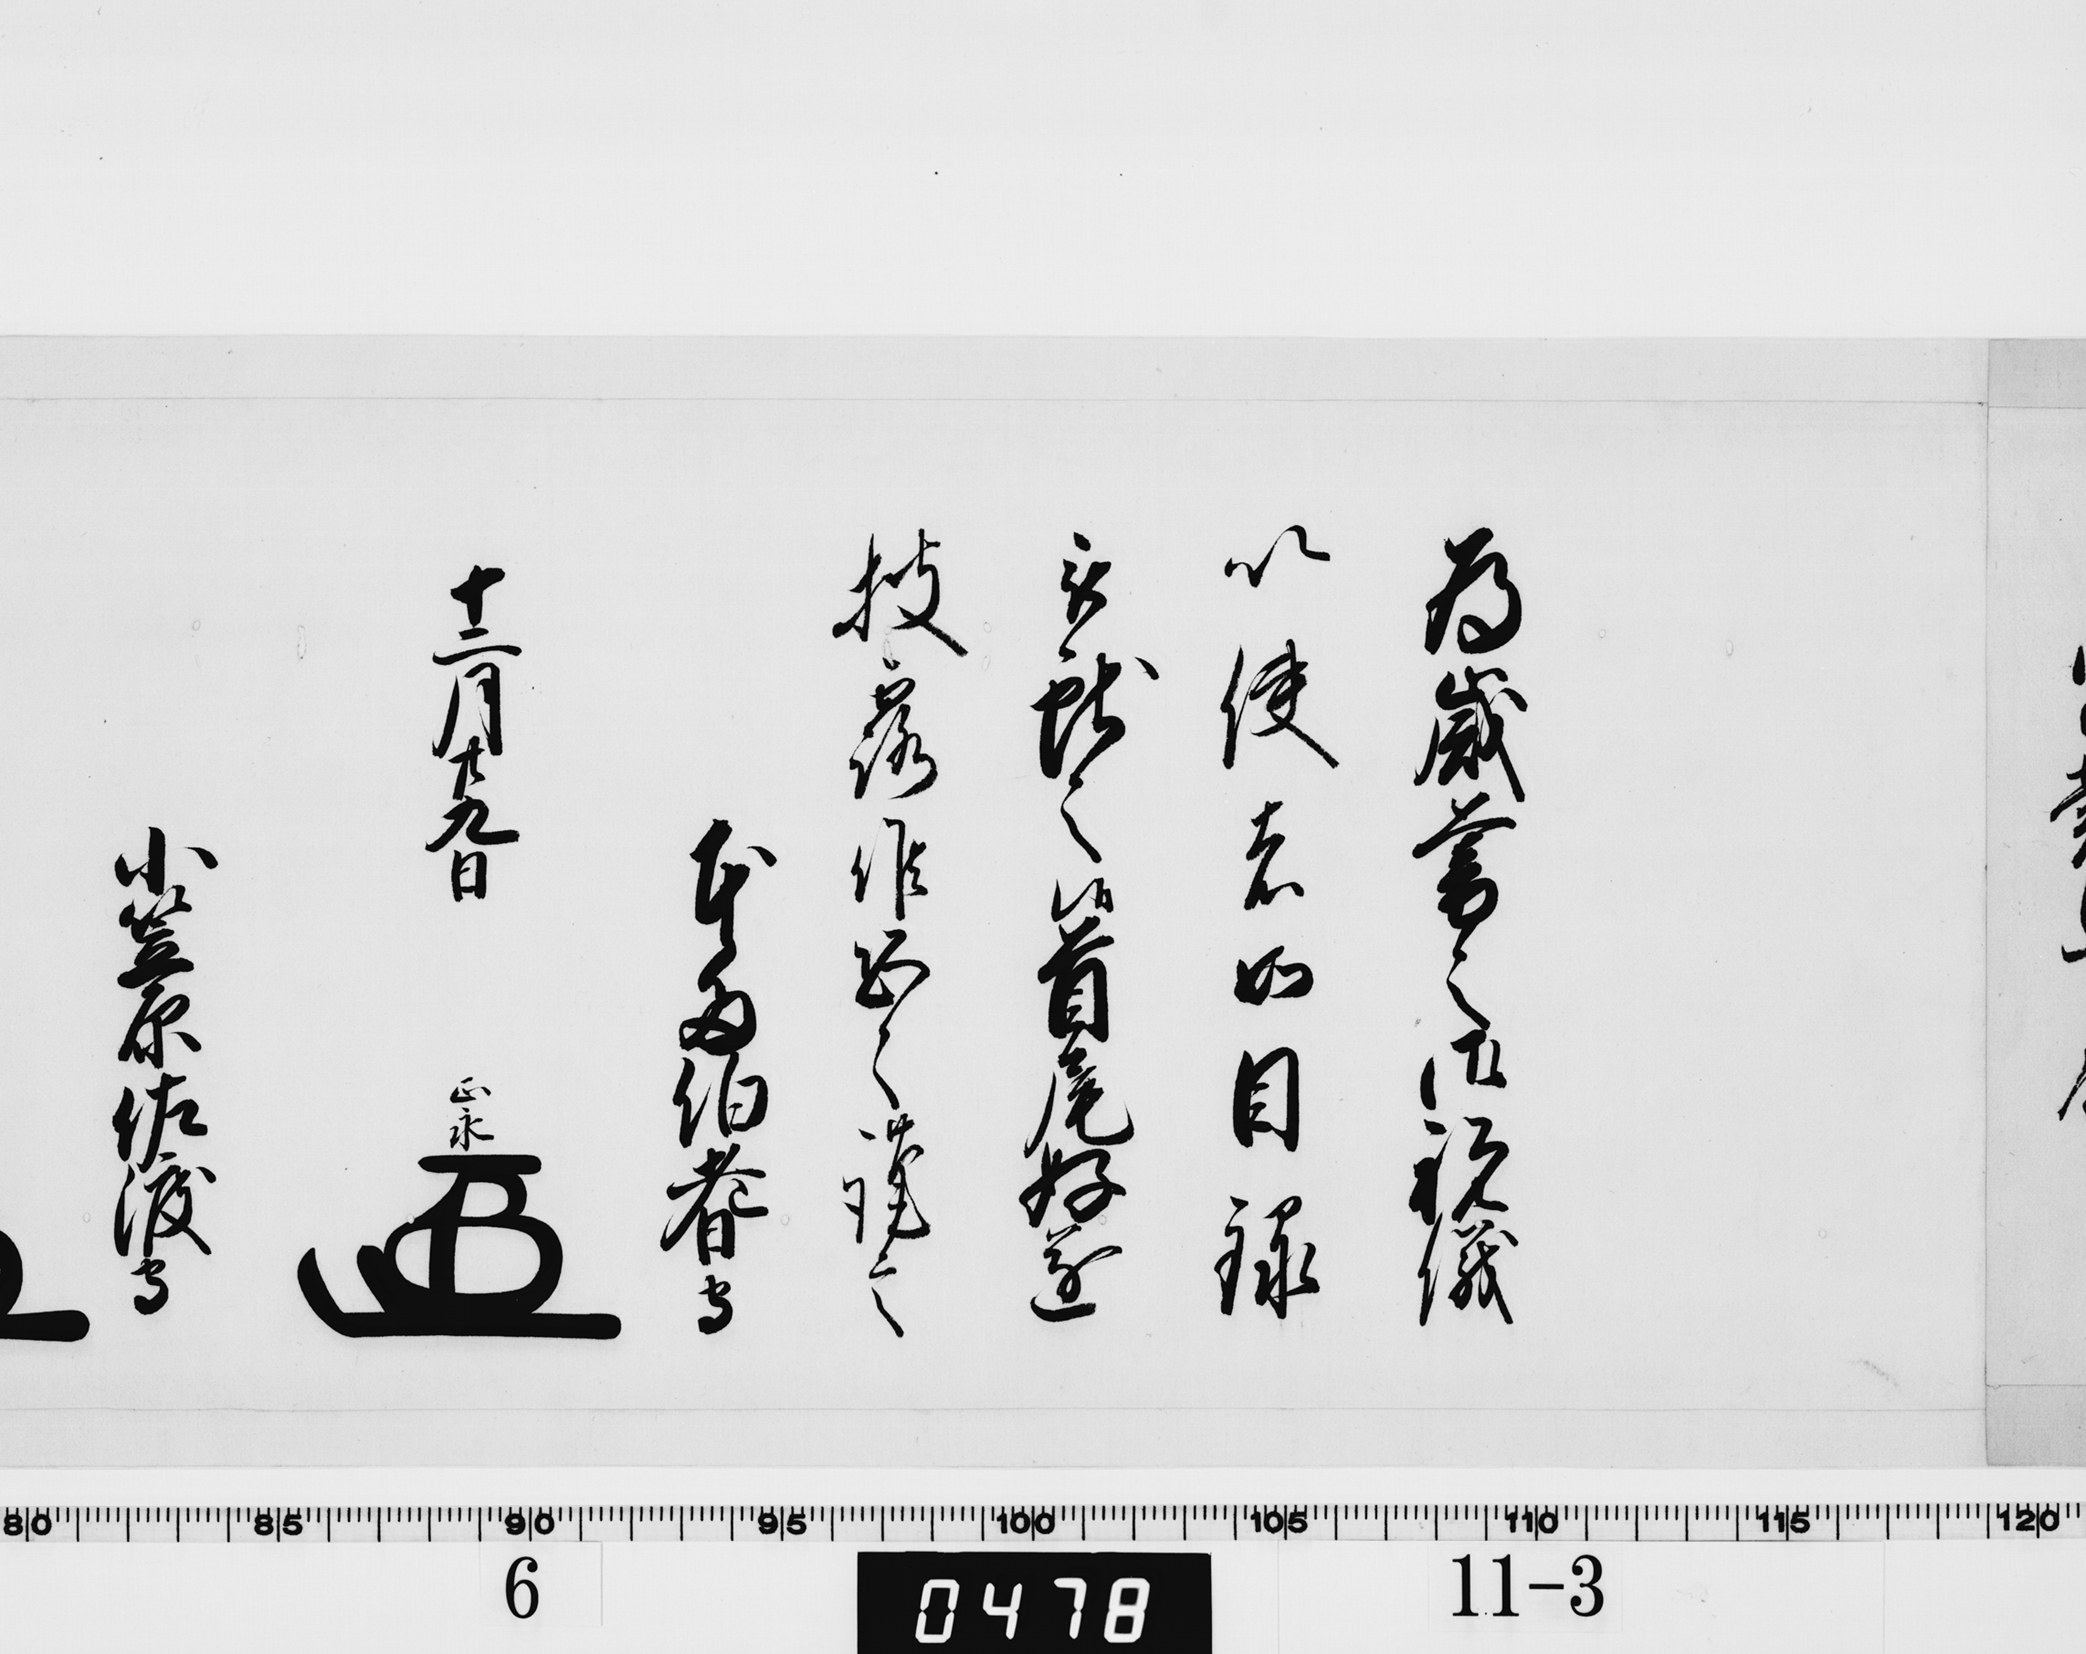 為歳暮之御祝儀
以使者如目録
被献之候首尾好遂
披露候恐々謹言
本多伯耆守
十二月廿九日
正永
小笠原佐渡守
80 85 90 95 100 105 110 115 120
6
0478
11-3